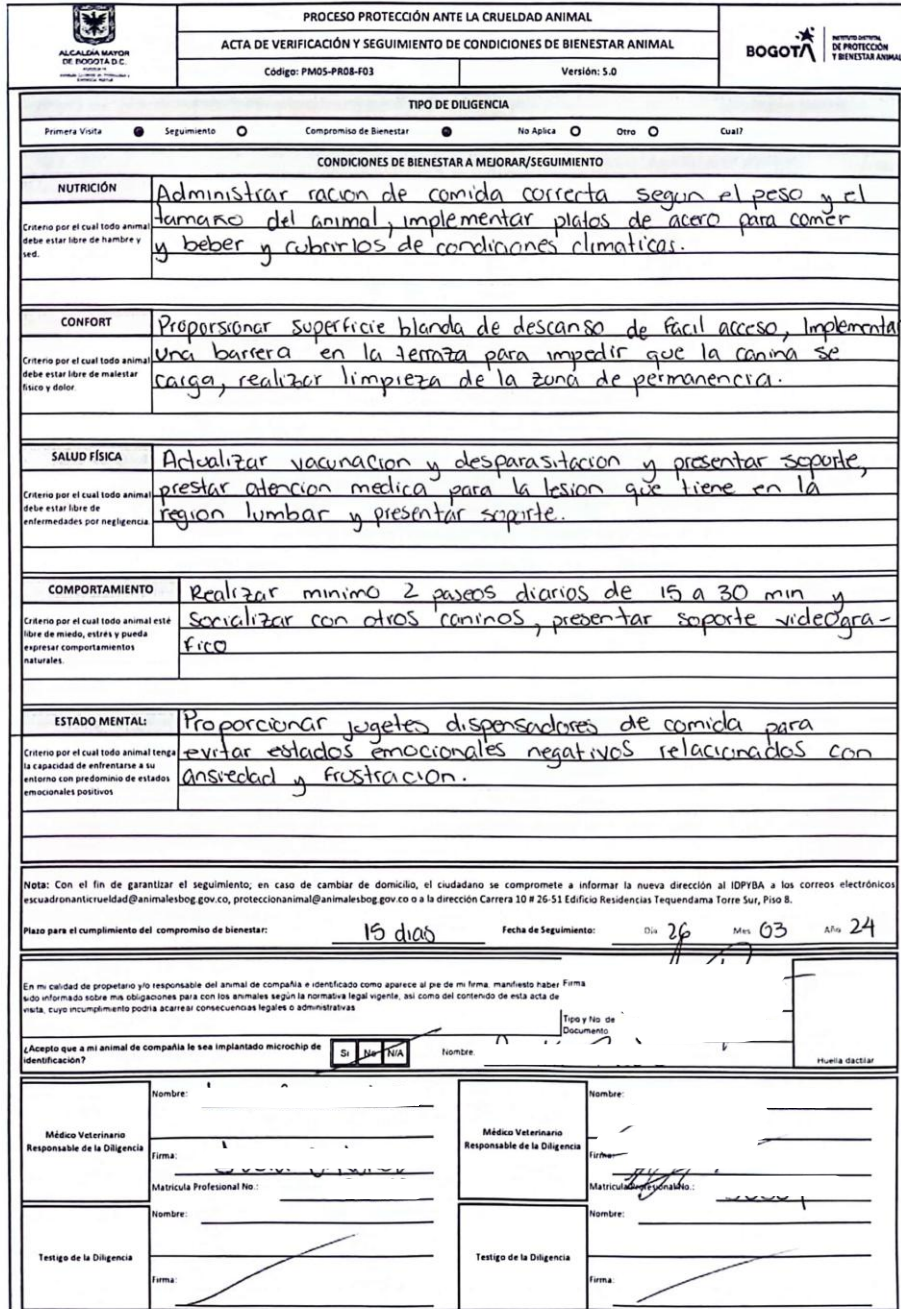 ALCALDÍA MAYOR
DE BOGOTÁ D.C.
PROCESO PROTECCIÓN ANTE LA CRUELDAD ANIMAL
ACTA DE VERIFICACIÓN Y SEGUIMIENTO DE CONDICIONES DE BIENESTAR ANIMAL
Código: PM05-PR08-F03
Versión: 5.0
BOGOTÁ
INSTITUTO DISTRITAL
DE PROTECCIÓN
Y BIENESTAR ANIMAL
TIPO DE DILIGENCIA
Primera Visita Seguimiento Compromiso de Bienestar No Aplica Otro Cual?
CONDICIONES DE BIENESTAR A MEJORAR/SEGUIMIENTO
NUTRICIÓN
Criterio por el cual todo animal
debe estar libre de hambre y
sed.
Administrar racion de comida correcta segun el peso y el
tamaño del animal, implementar platos de acero para comer
y beber y cubrirlos de condiciones climaticas.
CONFORT
Criterio por el cual todo animal
debe estar libre de malestar
físico y dolor.
Proporsionar superficie blanda de descanso de facil acceso, Implementa
una barrera en la terraza para impedir que la canina se
caiga, realizar limpieza de la zona de permanencia.
SALUD FÍSICA
Criterio por el cual todo animal
debe estar libre de
enfermedades por negligencia.
Actualizar vacunacion y desparasitacion y presentar soporte,
prestar atencion medica para la lesion que tiene en la
region lumbar y presentar soporte.
COMPORTAMIENTO
Criterio por el cual todo animal esté
libre de miedo, estrés y pueda
expresar comportamientos
naturales.
Realizar minimo 2 paseos diarios de 15 a 30 min y
socializar con otros caninos, presentar soporte videogra-
fico
ESTADO MENTAL:
Criterio por el cual todo animal tenga
la capacidad de enfrentarse a su
entorno con predominio de estados
emocionales positivos
Proporcionar jugetes dispensadores de comida para
evitar estados emocionales negativos relacionados con
ansiedad y frustracion.
Nota: Con el fin de garantizar el seguimiento; en caso de cambiar de domicilio, el ciudadano se compromete a informar la nueva dirección al IDPYBA a los correos electrónicos
escuadronanticrueldad@animalesbog.gov.co, proteccionanimal@animalesbog.gov.co o a la dirección Carrera 10 # 26-51 Edificio Residencias Tequendama Torre Sur, Piso 8.
Plazo para el cumplimiento del compromiso de bienestar: 15 dias Fecha de Seguimiento: Día 26 Mes 03 Año 24
En mi calidad de propetario y/o responsable del animal de compañía e identificado como aparece al pie de mi firma, manifiesto haber
sido informado sobre mis obligaciones para con los animales según la normativa legal vigente, así como del contenido de esta acta de
visita, cuyo incumplimiento podría acarrear consecuencias legales o administrativas
Firma
Tipo y No. de
Documento
¿Acepto que a mi animal de compañía le sea implantado microchip de
identificación?
Si No N/A
Nombre.
Huella dactilar
Médico Veterinario
Responsable de la Diligencia
Nombre:
Firma:
Matricula Profesional No.:
Médico Veterinario
Responsable de la Diligencia
Nombre:
Firma:
Matricula Profesional No.:
Testigo de la Diligencia
Nombre:
Firma:
Testigo de la Diligencia
Nombre:
Firma: